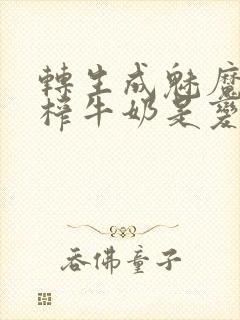 轉生成魅魔
榨牛奶是變
吞佛童子